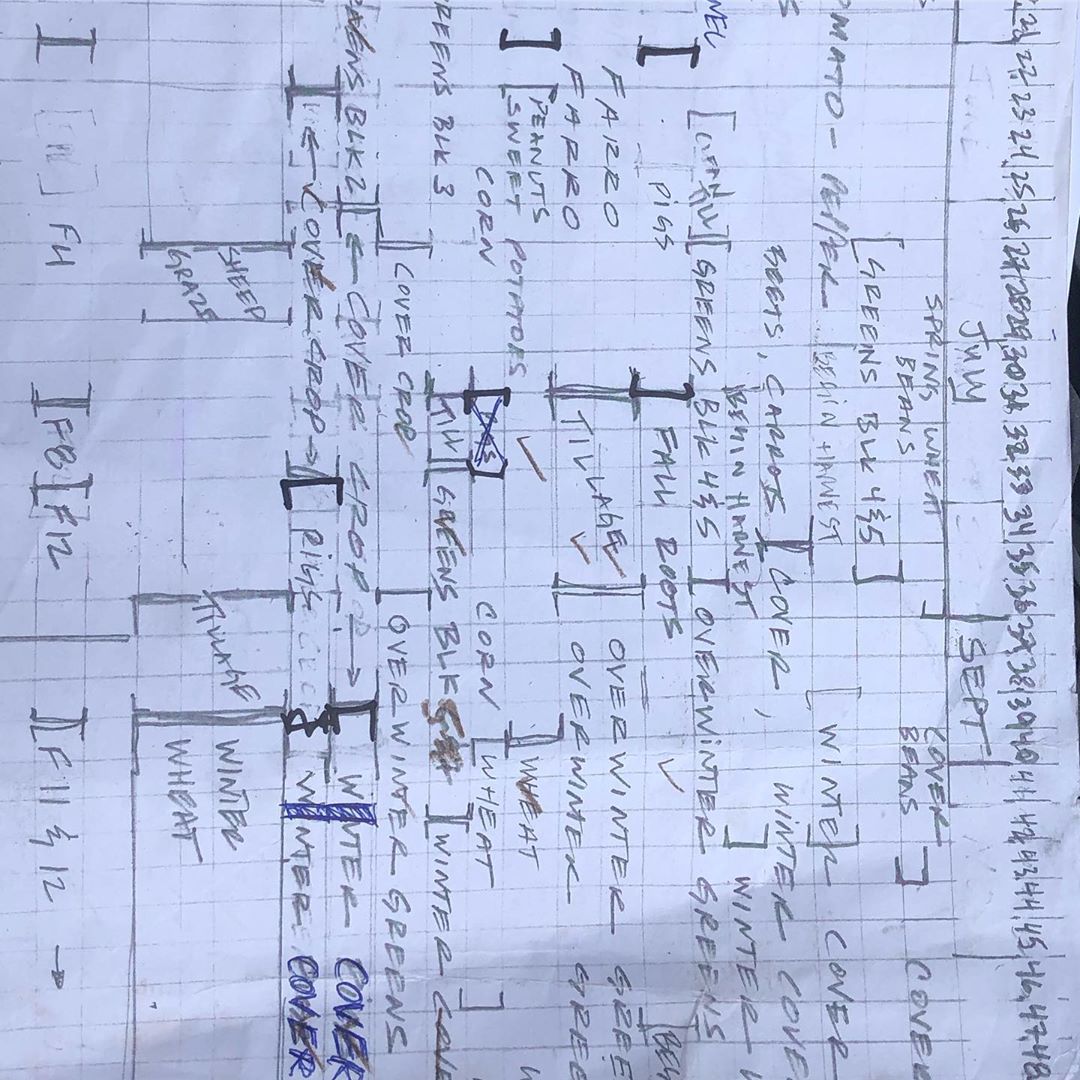 22 23 24 25 26 27 28 29 30 31 32 33 34 35 36 37 38 39 40 41 42 43 44 45 46 47 48
JULY SEPT
SPRING WHEAT
BEANS COVER BEANS COVER
[GREENS BLK 4&5]
MATO - PEPPER BEGIN HARVEST [WINTER] COVER
BEETS, CARROTS COVER, WINTER COVE
BEGIN HARVEST [WINTER
GREENS BLK 4&5 OVERWINTER GREENS
PIGS FALL ROOTS
FARRO OVERWINTER GREE
FARRO TILLAGE OVERWINTER GREE
PEANUTS
SWEET POTATOES WHEAT
CORN CORN WHEAT
REENS BLK 3 TILL GREENS BLK WINTER COVE
COVE CROP OVERWINTER GREENS
EENS BLK 2 ← COVER CROP → WINTER COVER
← COVER CROP → PIGS WINTER COVER
SHEEP GRAZE TILLAGE WINTER WHEAT
F4 F8 F12 F11 & 12 →